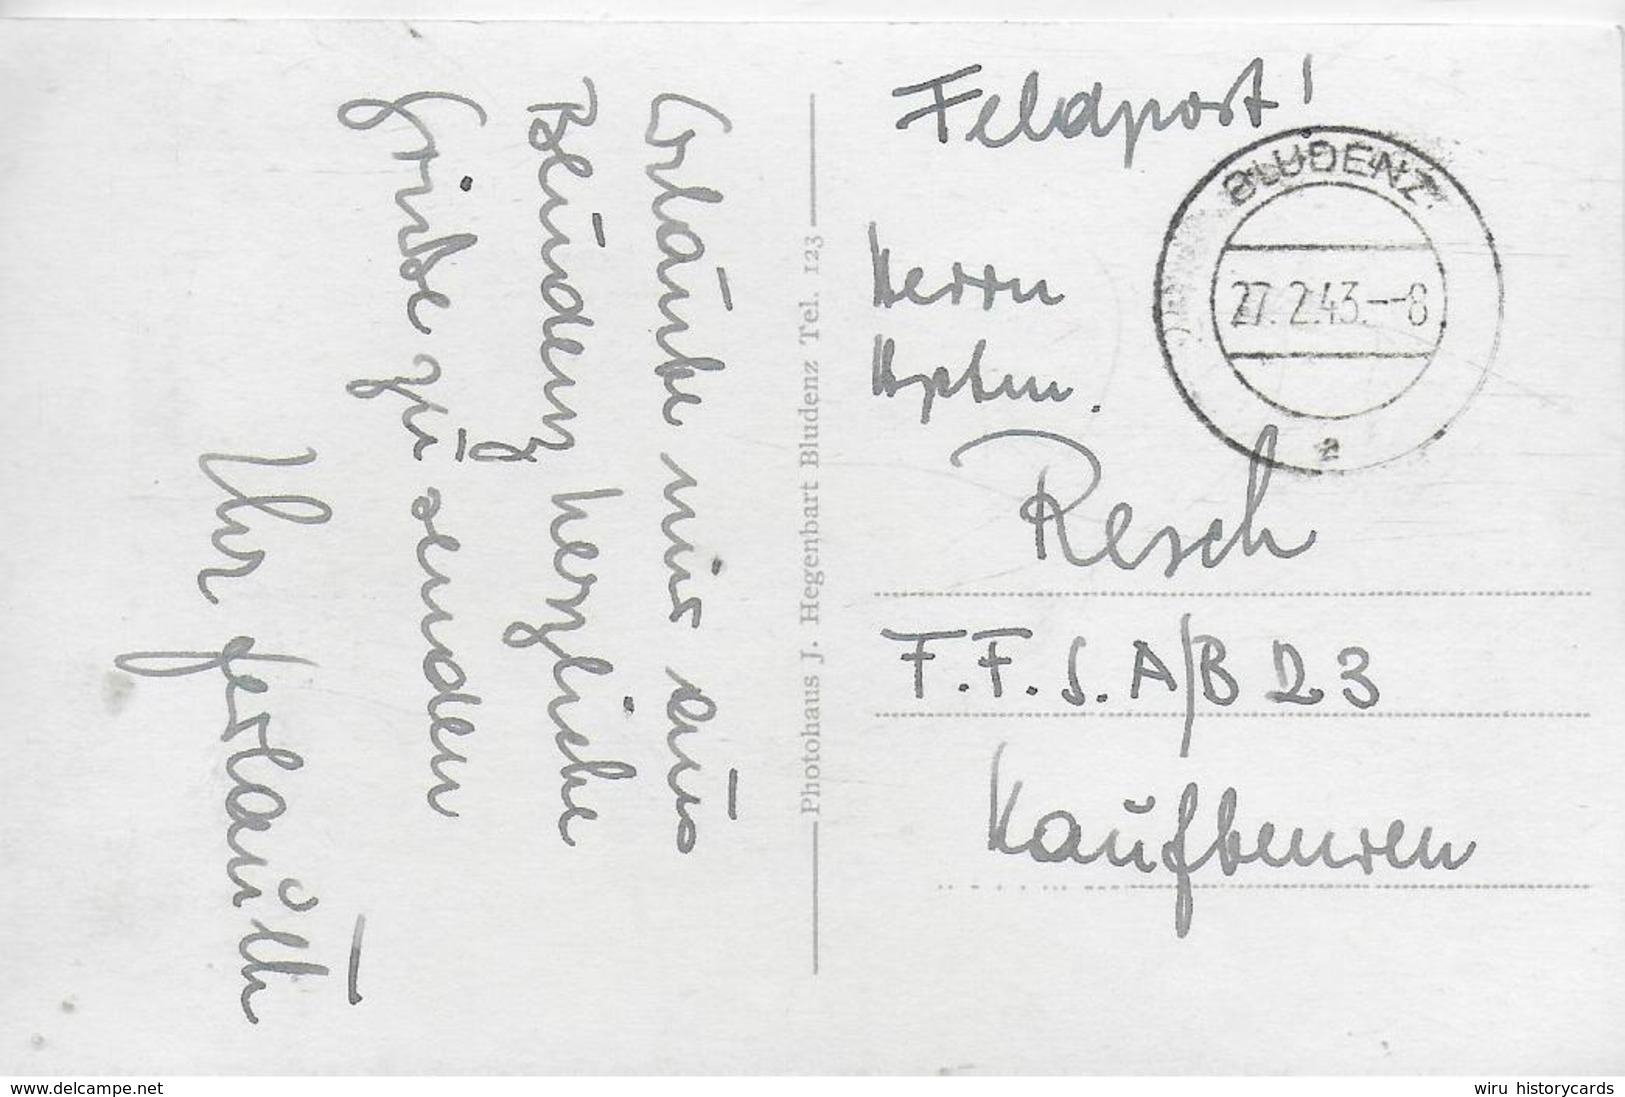 Erlaube mir aus
Bludenz herzliche
Grüße zu senden
Ihr
Photohaus J. Hegenbart Bludenz Tel. 123
Feldpost!
BLUDENZ
27.2.43.--8
a
Herrn
Hptm.
Resch
F.F.S. A/B 23
Kaufbeuren
www.delcampe.net
wiru historycards